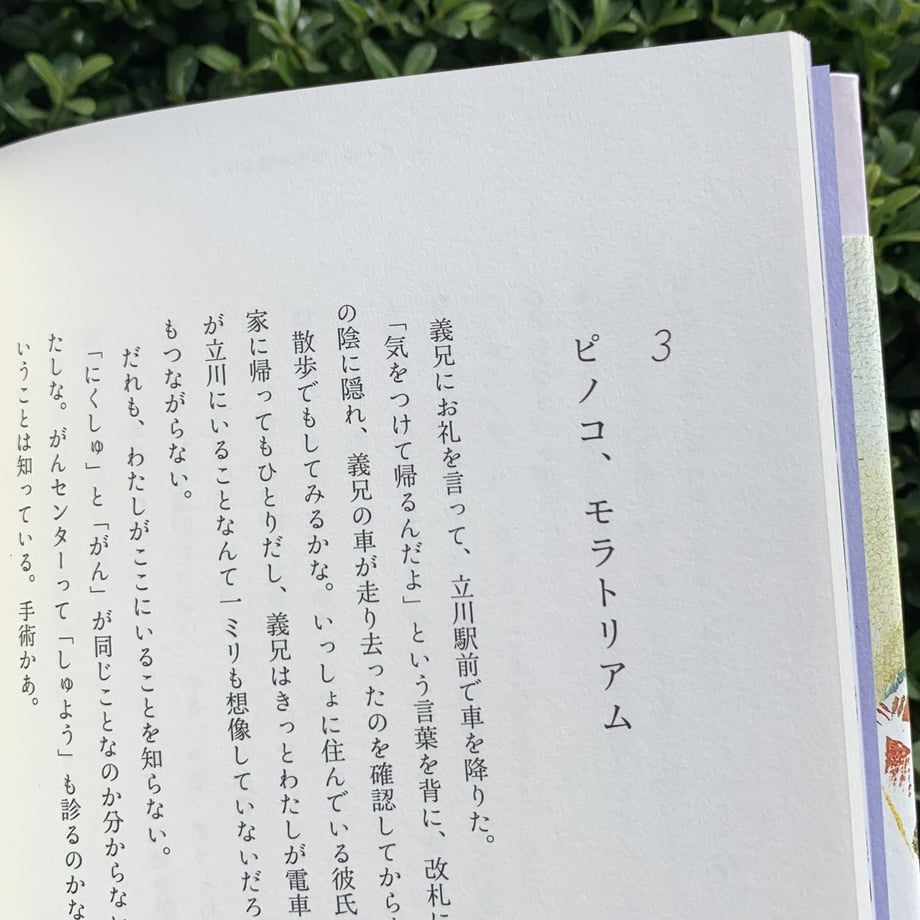 3
ピノコ、モラトリアム
義兄にお礼を言って、立川駅前で車を降りた。
「気をつけて帰るんだよ」という言葉を背に、改札に
の陰に隠れ、義兄の車が走り去ったのを確認してから
散歩でもしてみるかな。いっしょに住んでいる彼氏
家に帰ってもひとりだし、義兄はきっとわたしが電車
が立川にいることなんて一ミリも想像していないだろ
もつながらない。
だれも、わたしがここにいることを知らない。
「にくしゅ」と「がん」が同じことなのか分からない
たしな。がんセンターって「しゅよう」も診るのかな
いうことは知っている。手術かあ。